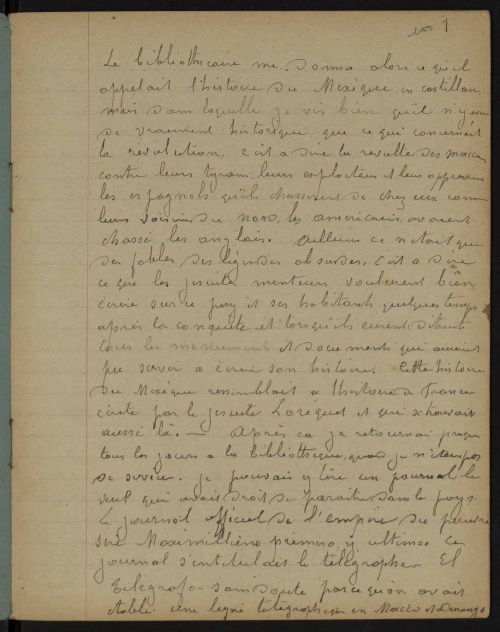 100 1
Le bibliothécaire me donna alors ce qu'il
appelait l'histoire du Mexique, en castillan,
mais dans laquelle je vis bien qu'il n'y avait
de vraiment historique que ce qui concernait
la révolution, c'est a dire la revolte des
contre leurs tyrans, leurs exploiteurs et leurs oppresseurs
les espagnols qu'ils chasserent de chez eux comme
leurs voisins du nord, les americains avaient
chassé les anglais. Ailleurs ce n'etait que
des fables des légendes absurdes, c'est a dire
ce que les jesuites menteurs voulurent bien
écrire sur ce pays et ses habitants quelque temps
après la conquete et lorsqu'ils eurent détruit
tous les monuments et documents qui auraient
pu servir a écrire son histoire. Cette histoire
du Mexique ressemblait a l'histoire de France
écrite par le jesuite Loriquet et qui se trouvait
aussi là. — Après ca je retournai presque
tous les jours a la bibliothèque, quand je n'etais pas
de service. Je pouvais y lire un journal le
seul qui avait droit de paraitre dans le pays.
Le journal officiel de l'empire du pauvre
sire Maximiliano primero y ultimo. Ce
journal s'intitulait le télégraphe El
Telegrafo sans doute parce qu'on avait
établi une ligne télégraphique en Mexico et Durango